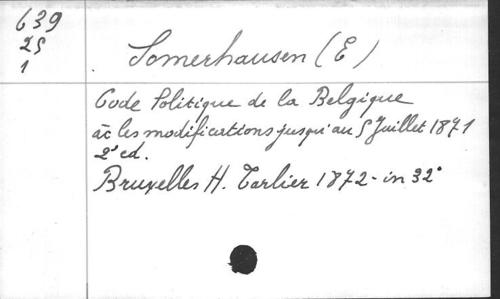 639
25
1
Somerhausen (E)
Code Politique de la Belgique
àc les modifications jusqu'au 5 Juillet 1871
2e ed.
Bruxelles H. Tarlier 1872 - in 32°